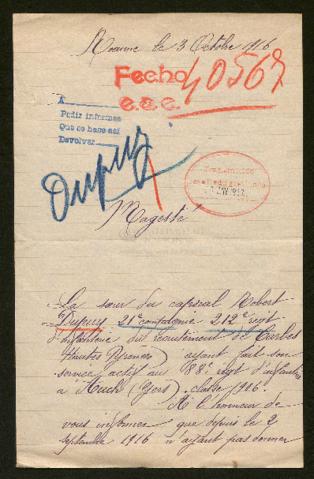 Roanne le 3 Octobre 1916
Fecho 40567
e.e.e.
A
Pedir informes
Que se hace así
Devolver
Dupuy
Magesté
La sœur du caporal Robert
Dupuy 21e compagnie 212e regt
d'infanterie du recrutement de Tarbes
Hautes Pyrénées ayant fait son
service actif au 88e regt d'infanterie
à Auch (Gers) classe 1906.
A l'honneur de
vous informer que depuis le 2
septembre 1916 n'ayant pas donner